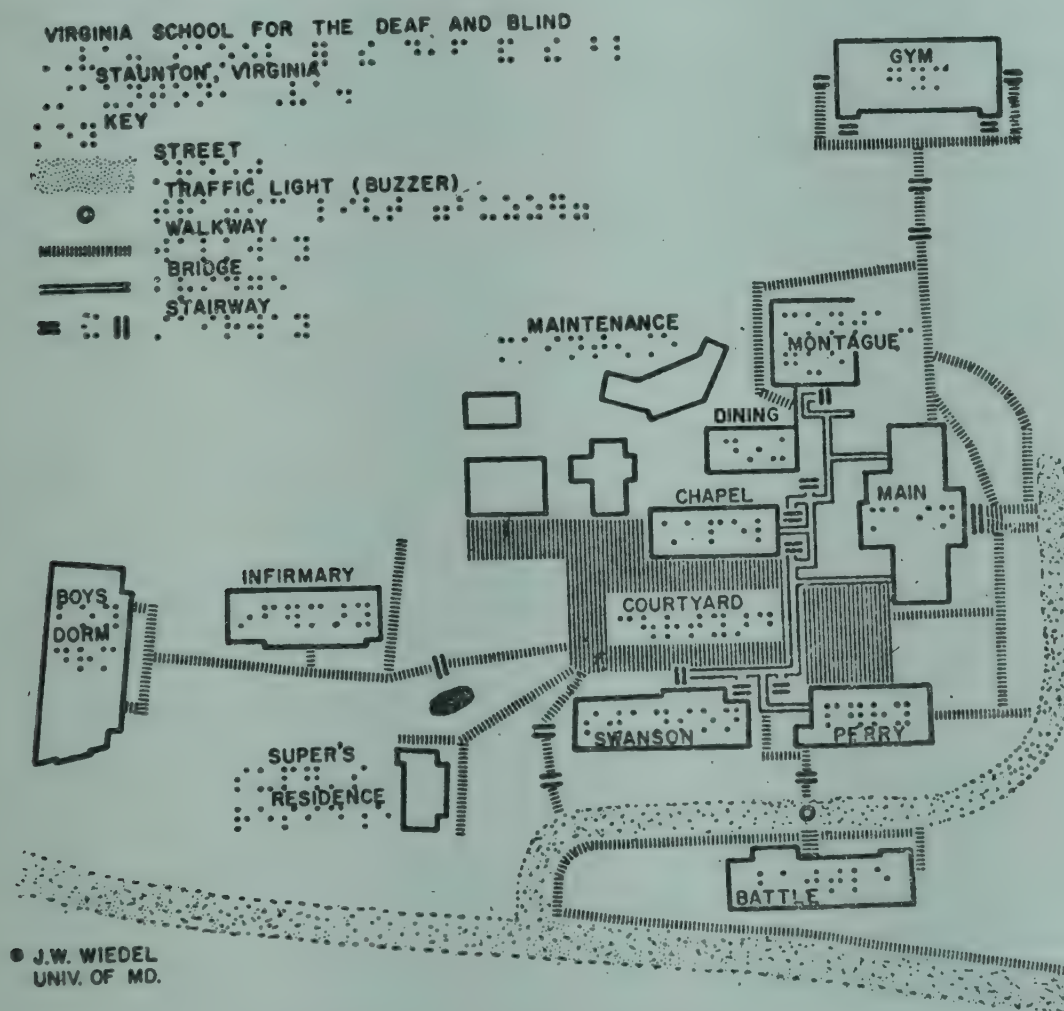 VIRGINIA SCHOOL FOR THE DEAF AND BLIND
STAUNTON, VIRGINIA
KEY
STREET
TRAFFIC LIGHT (BUZZER)
WALKWAY
BRIDGE
STAIRWAY
GYM
MAINTENANCE
MONTAGUE
DINING
CHAPEL
MAIN
INFIRMARY
BOYS
DORM
COURTYARD
SWANSON
PERRY
SUPER'S
RESIDENCE
BATTLE
© J.W. WIEDEL
UNIV. OF MD.